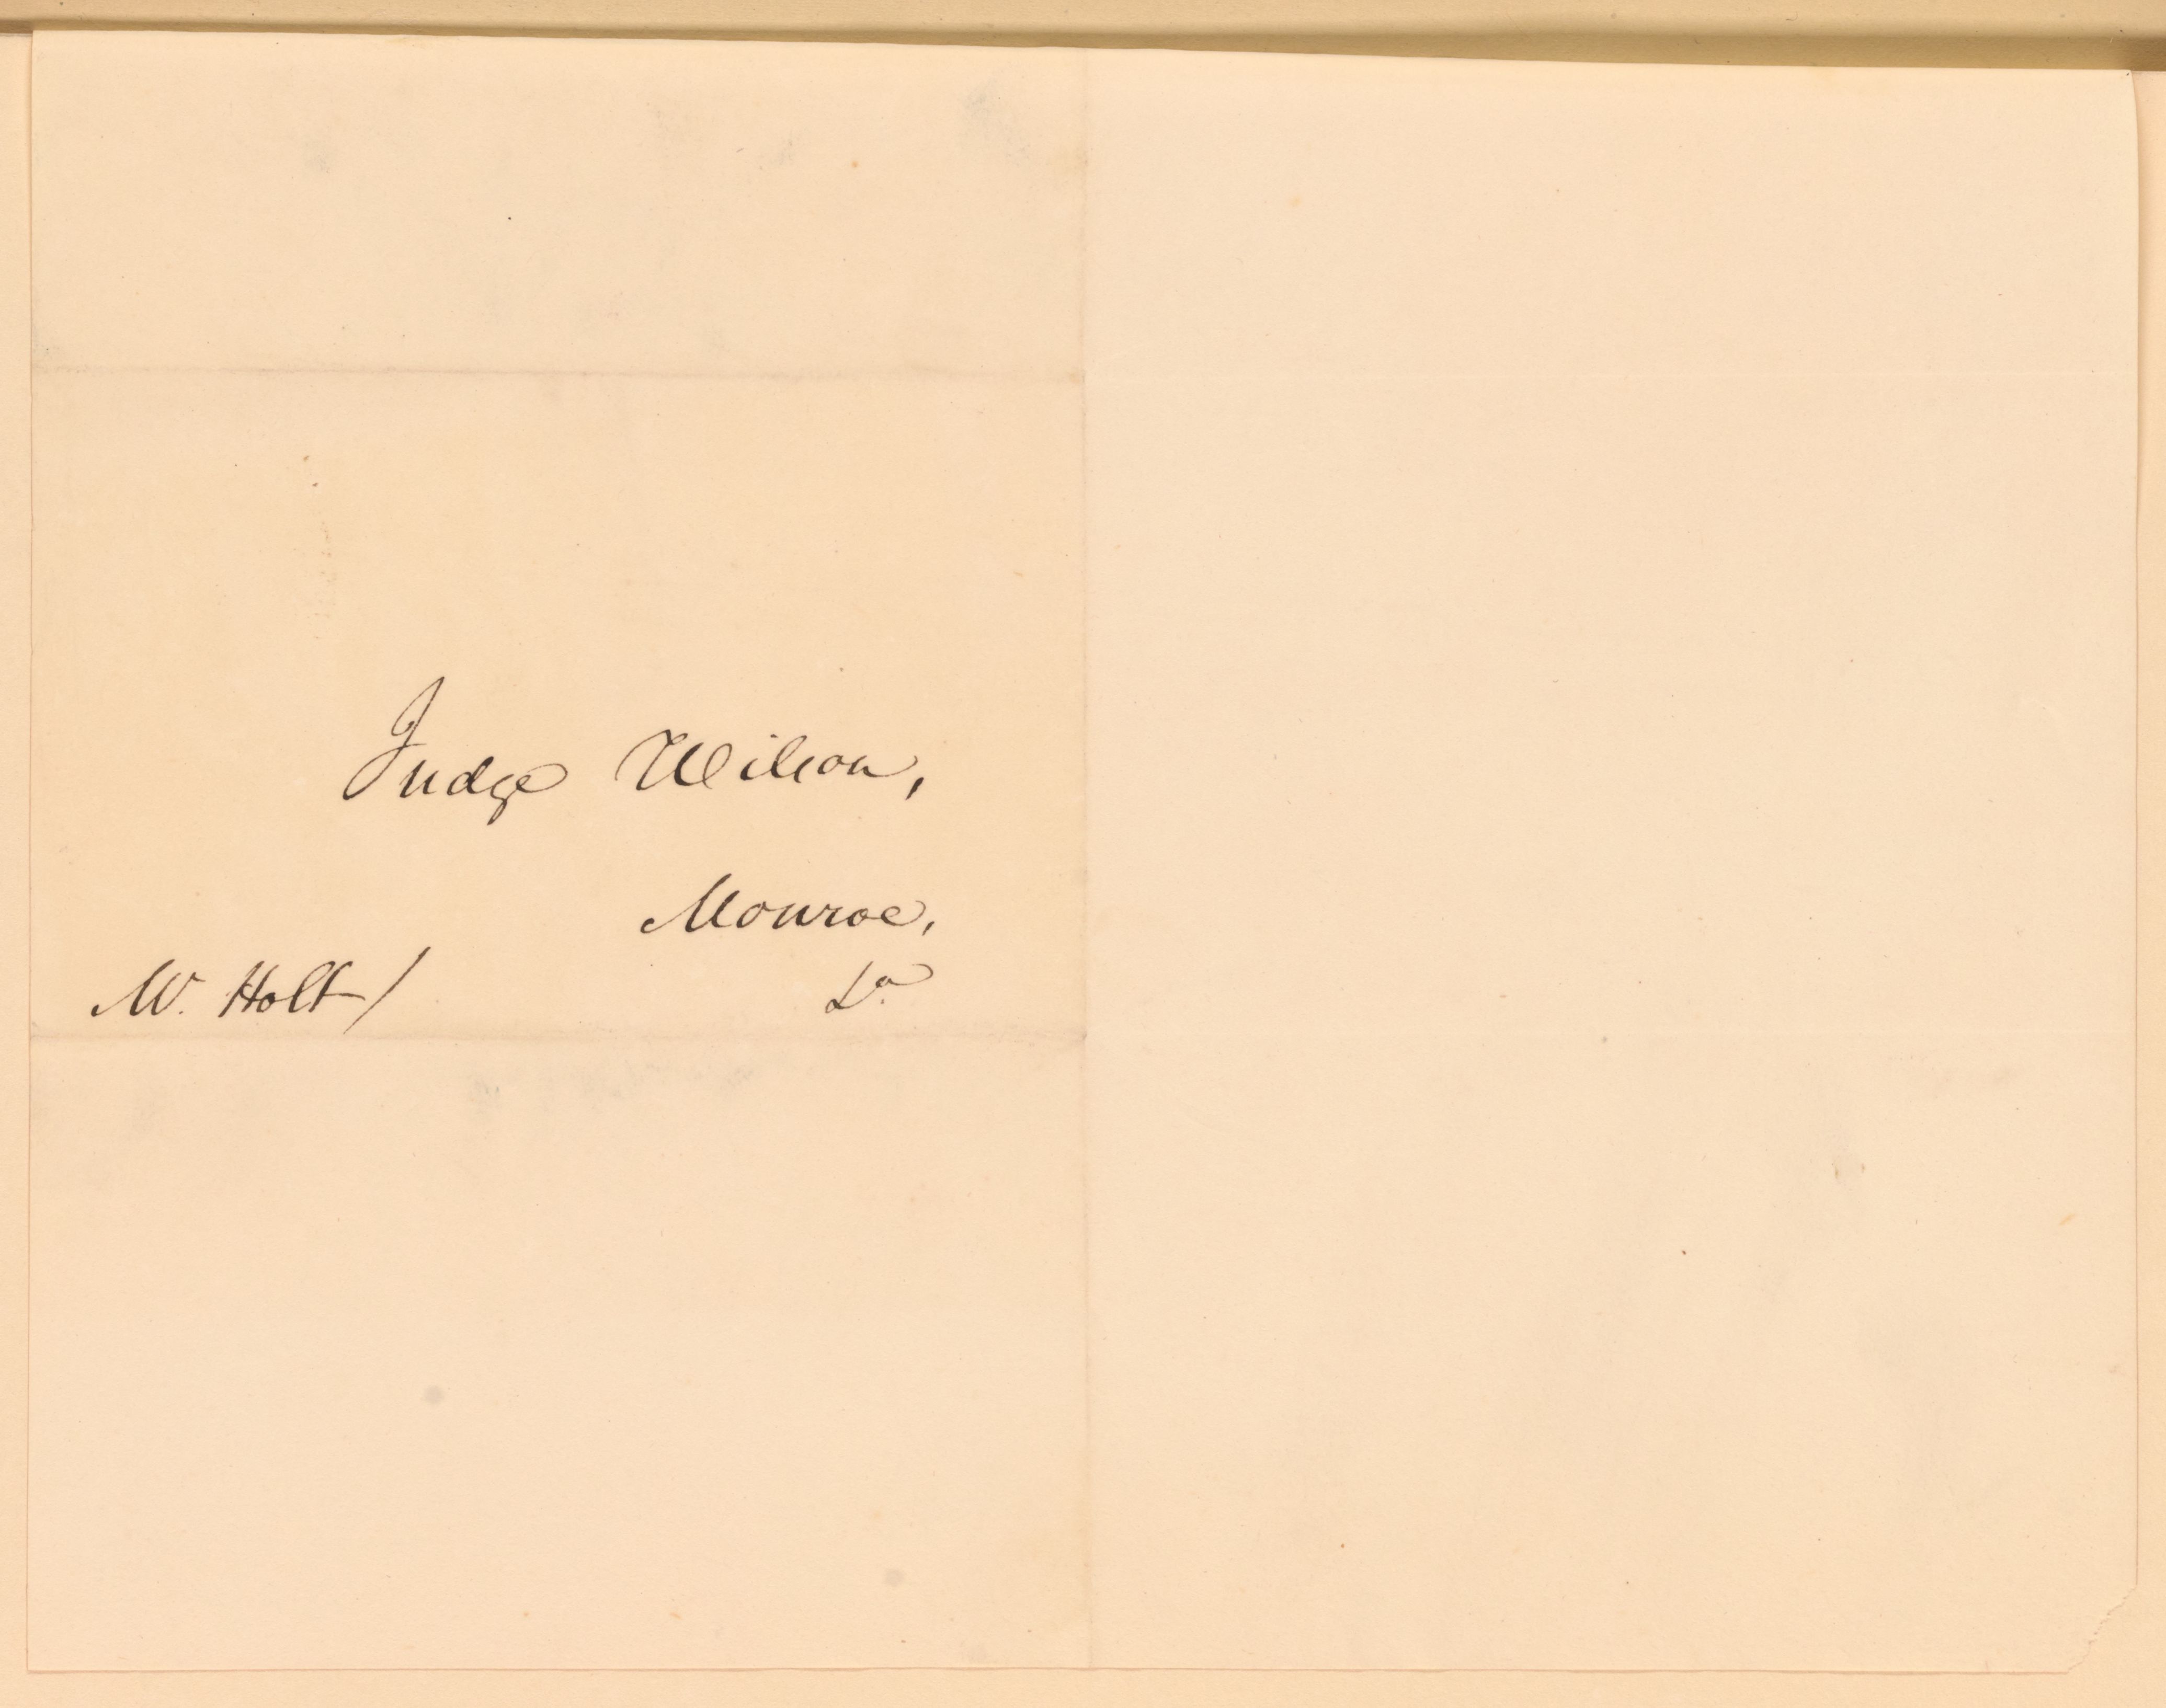 Judge Wilson,
Monroe,
La
Mr. Holt /